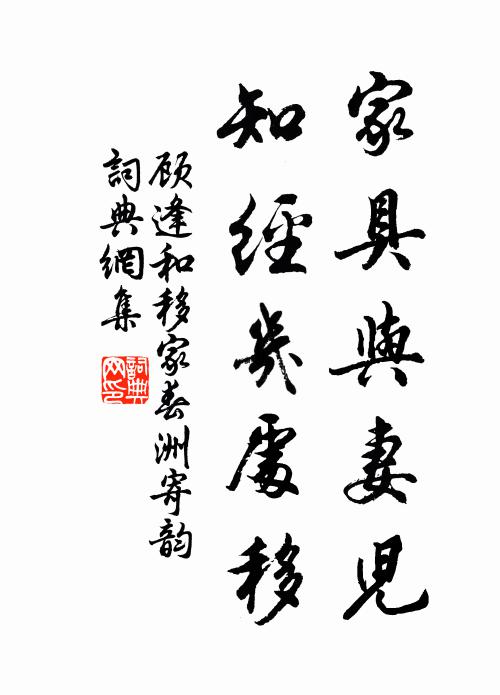 家具與妻兒
知經幾處移
顾逢和移家春洲寄韵
詞典網集
詞典網印